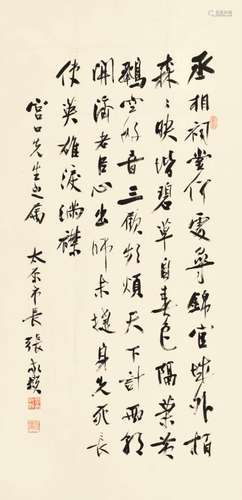 丞相祠堂何處尋錦官城外柏
森〻映堦碧草自春色隔葉黃
鸝空好音三顧頻煩天下計兩朝
開濟老臣心出師未捷身先死長
使英雄淚滿襟
宮口先生之屬
太原市長張